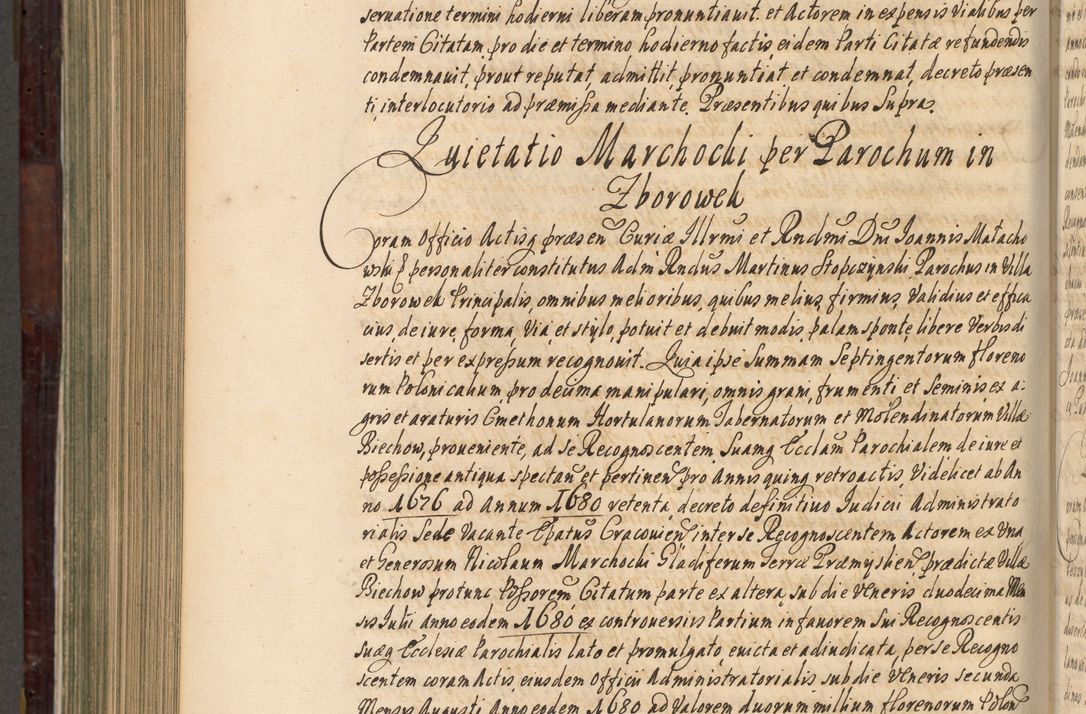 seruatione termini hodierni liberam pronuntiauit. et Actorem in expensis Vialibus per
Partem Citatam pro die et termino hodierno factis, eidem Parti Citatæ refundendis
condemnauit, prout reputat, admittit, pronuntiat et condemnat, decreto præsen
ti, interlocutorio ad præmissa mediante. Præsentibus quibus Supra.
Quietatio Marchochi per Parochum in
Zborowek
Coram Officio Actisq præsen Curiæ Illrmi et Rndmi Dni Joannis Matacho
wski personaliter constitutus Adm Rndus Martinus Stopczynski Parochus in Villa
Zborowek Principalis, omnibus melioribus, quibus melius, firmius, Validius et effica
cius, de iure, forma, Via, et stylo, potuit et debuit modis, palam sponte, libere Verbis di
sertis et per expressum recognouit. Quia ipse Summam Septingentorum floreno
rum Polonicalium, pro decima manipulari, omnis grani, frumenti et Seminis ex a-
gris et araturis Cmethonum Hortulanorum Tabernatorum et Molendinatorum Villæ
Biechow, proueniente, ad se Recognoscentem Suamq Ecclam Parochialem de iure et
possessione antiqua spectan et pertinen pro Annis quinq retroactis, Videlicet ab An
no 1676 ad annum 1680 retenta, decreto definitiuo Iudicii Administrato
rialis Sede Vacante Epatus Cracouien inter se Recognoscentem Actorem ex Una
et Generosum Nicolaum Marchocki Gladiferum Terræ Præmyslien prædictæ Villæ
Biechow protunc Possorem Citatum parte ex altera, sub die Veneris duodecima Men
sis Iulii anno eodem 1680 ex controuersiis Partium in fauorem Sui Recognoscentis
suæq Ecclesiæ Parochialis lato et promulgato, euicta et adiudicata, per se Recogno
scentem coram Actis, eiusdem Officii Administratorialis sub die Veneris secunda
Mensis Augusti Anno eodem 1680 ad Valorem duorum millium florenorum Polon